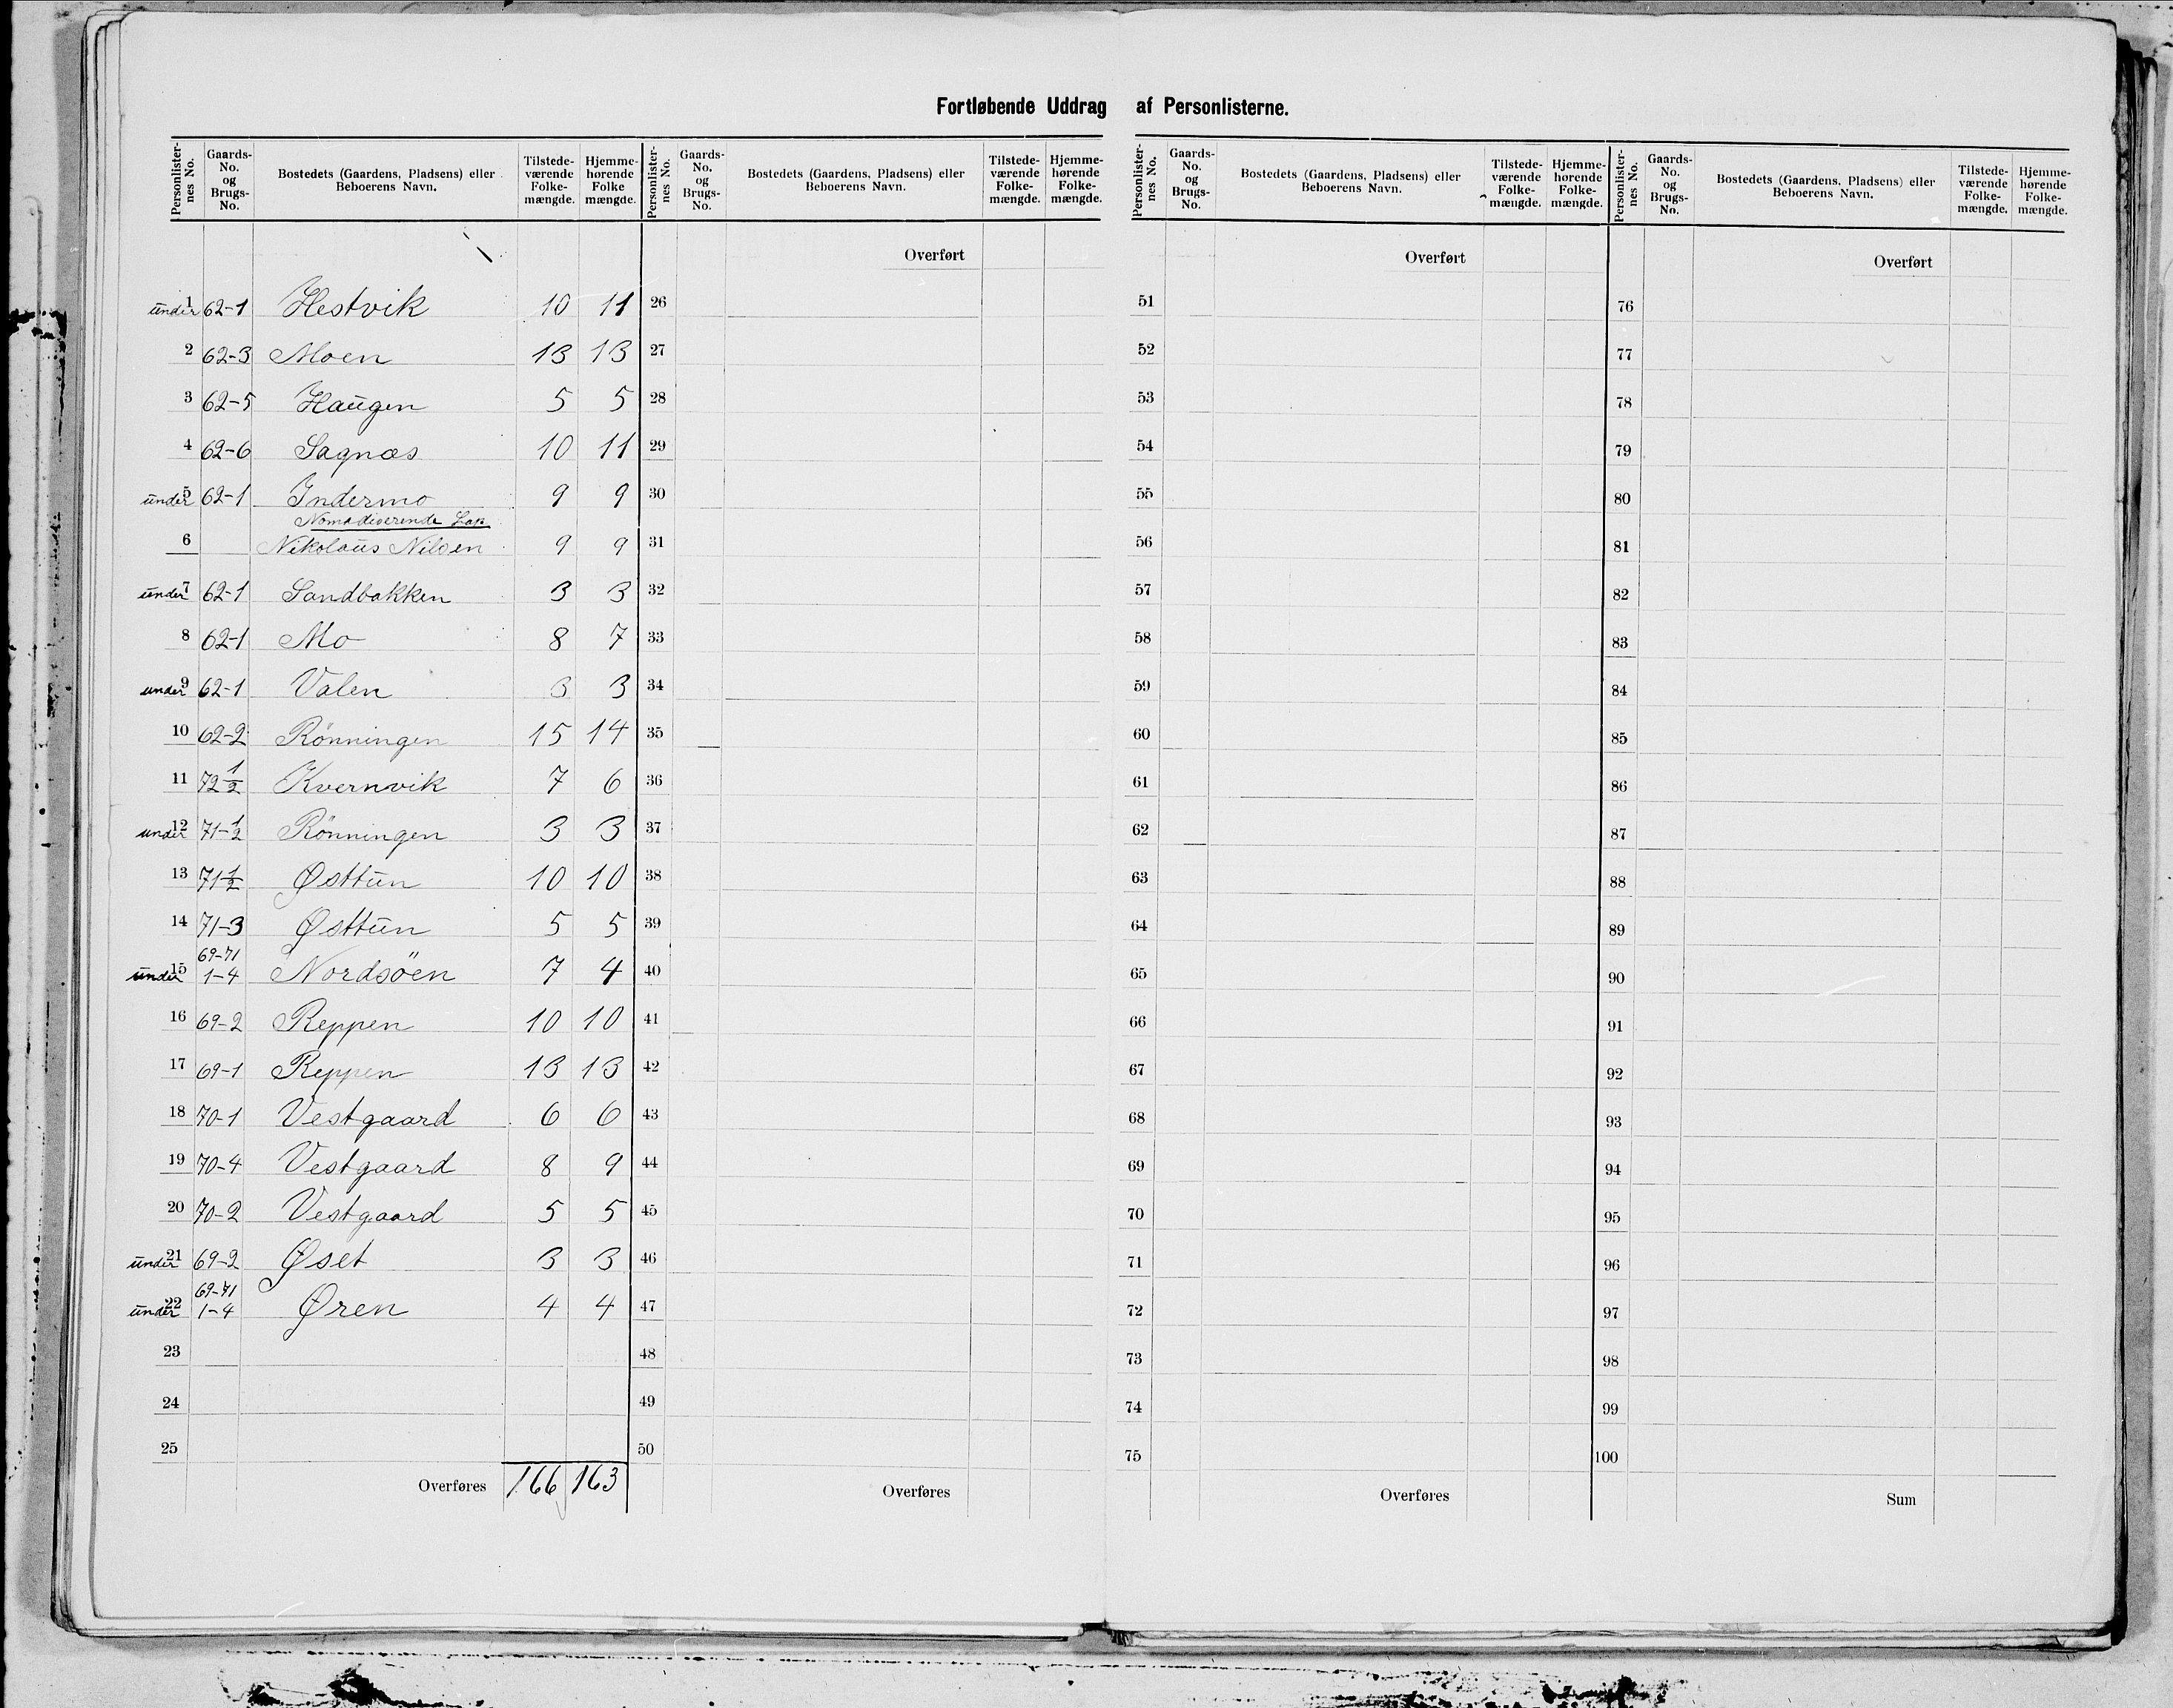 Fortløbende Uddrag af Personlisterne.
Personlister-nes No. Gaards-No. og Brugs-No. Bostedets (Gaardens, Pladsens) eller Beboerens Navn. Tilstede-værende Folke-mængde. Hjemme-hørende Folke mængde. Personlister-nes No. Gaards-No. og Brugs-No. Bostedets (Gaardens, Pladsens) eller Beboerens Navn. Tilstede-værende Folke-mængde. Hjemme-hørende Folke-mængde. Personlister-nes No. Gaards-No. og Brugs-No. Bostedets (Gaardens, Pladsens) eller Beboerens Navn. Tilstede-værende Folke-mængde. Hjemme-hørende Folke-mængde. Personlister-nes No. Gaards-No. og Brugs-No. Bostedets (Gaardens, Pladsens) eller Beboerens Navn. Tilstede-værende Folke-mængde. Hjemme-hørende Folke-mængde.
Overført Overført Overført
under 1 62-1 Hestvik 10 11 26 51 76
2 62-3 Moen 13 13 27 52 77
3 62-5 Haugen 5 5 28 53 78
4 62-6 Sagnæs 10 11 29 54 79
under 5 62-1 Indermo 9 9 30 55 80
Nomadiserende Lap
6 Nikolaus Nilsen 9 9 31 56 81
under 7 62-1 Sandbakken 3 3 32 57 82
8 62-1 Mo 8 7 33 58 83
under 9 62-1 Valen 3 3 34 59 84
10 62-2 Rönningen 15 14 35 60 85
11 72 1/2 Kvernvik 7 6 36 61 86
under 12 71-1/2 Rönningen 3 3 37 62 87
13 71 1/2 Østtun 10 10 38 63 88
14 71-3 Østtun 5 5 39 64 89
69-71
under 15 1-4 Nordsöen 7 4 40 65 90
16 69-2 Reppen 10 10 41 66 91
17 69-1 Reppen 13 13 42 67 92
18 70-1 Vestgaard 6 6 43 68 93
19 70-4 Vestgaard 8 9 44 69 94
20 70-2 Vestgaard 5 5 45 70 95
under 21 69-2 Øset 3 3 46 71 96
69-71
under 22 1-4 Øren 4 4 47 72 97
23 48 73 98
24 49 74 99
25 50 75 100
Overføres 166 163 Overføres Overføres Sum